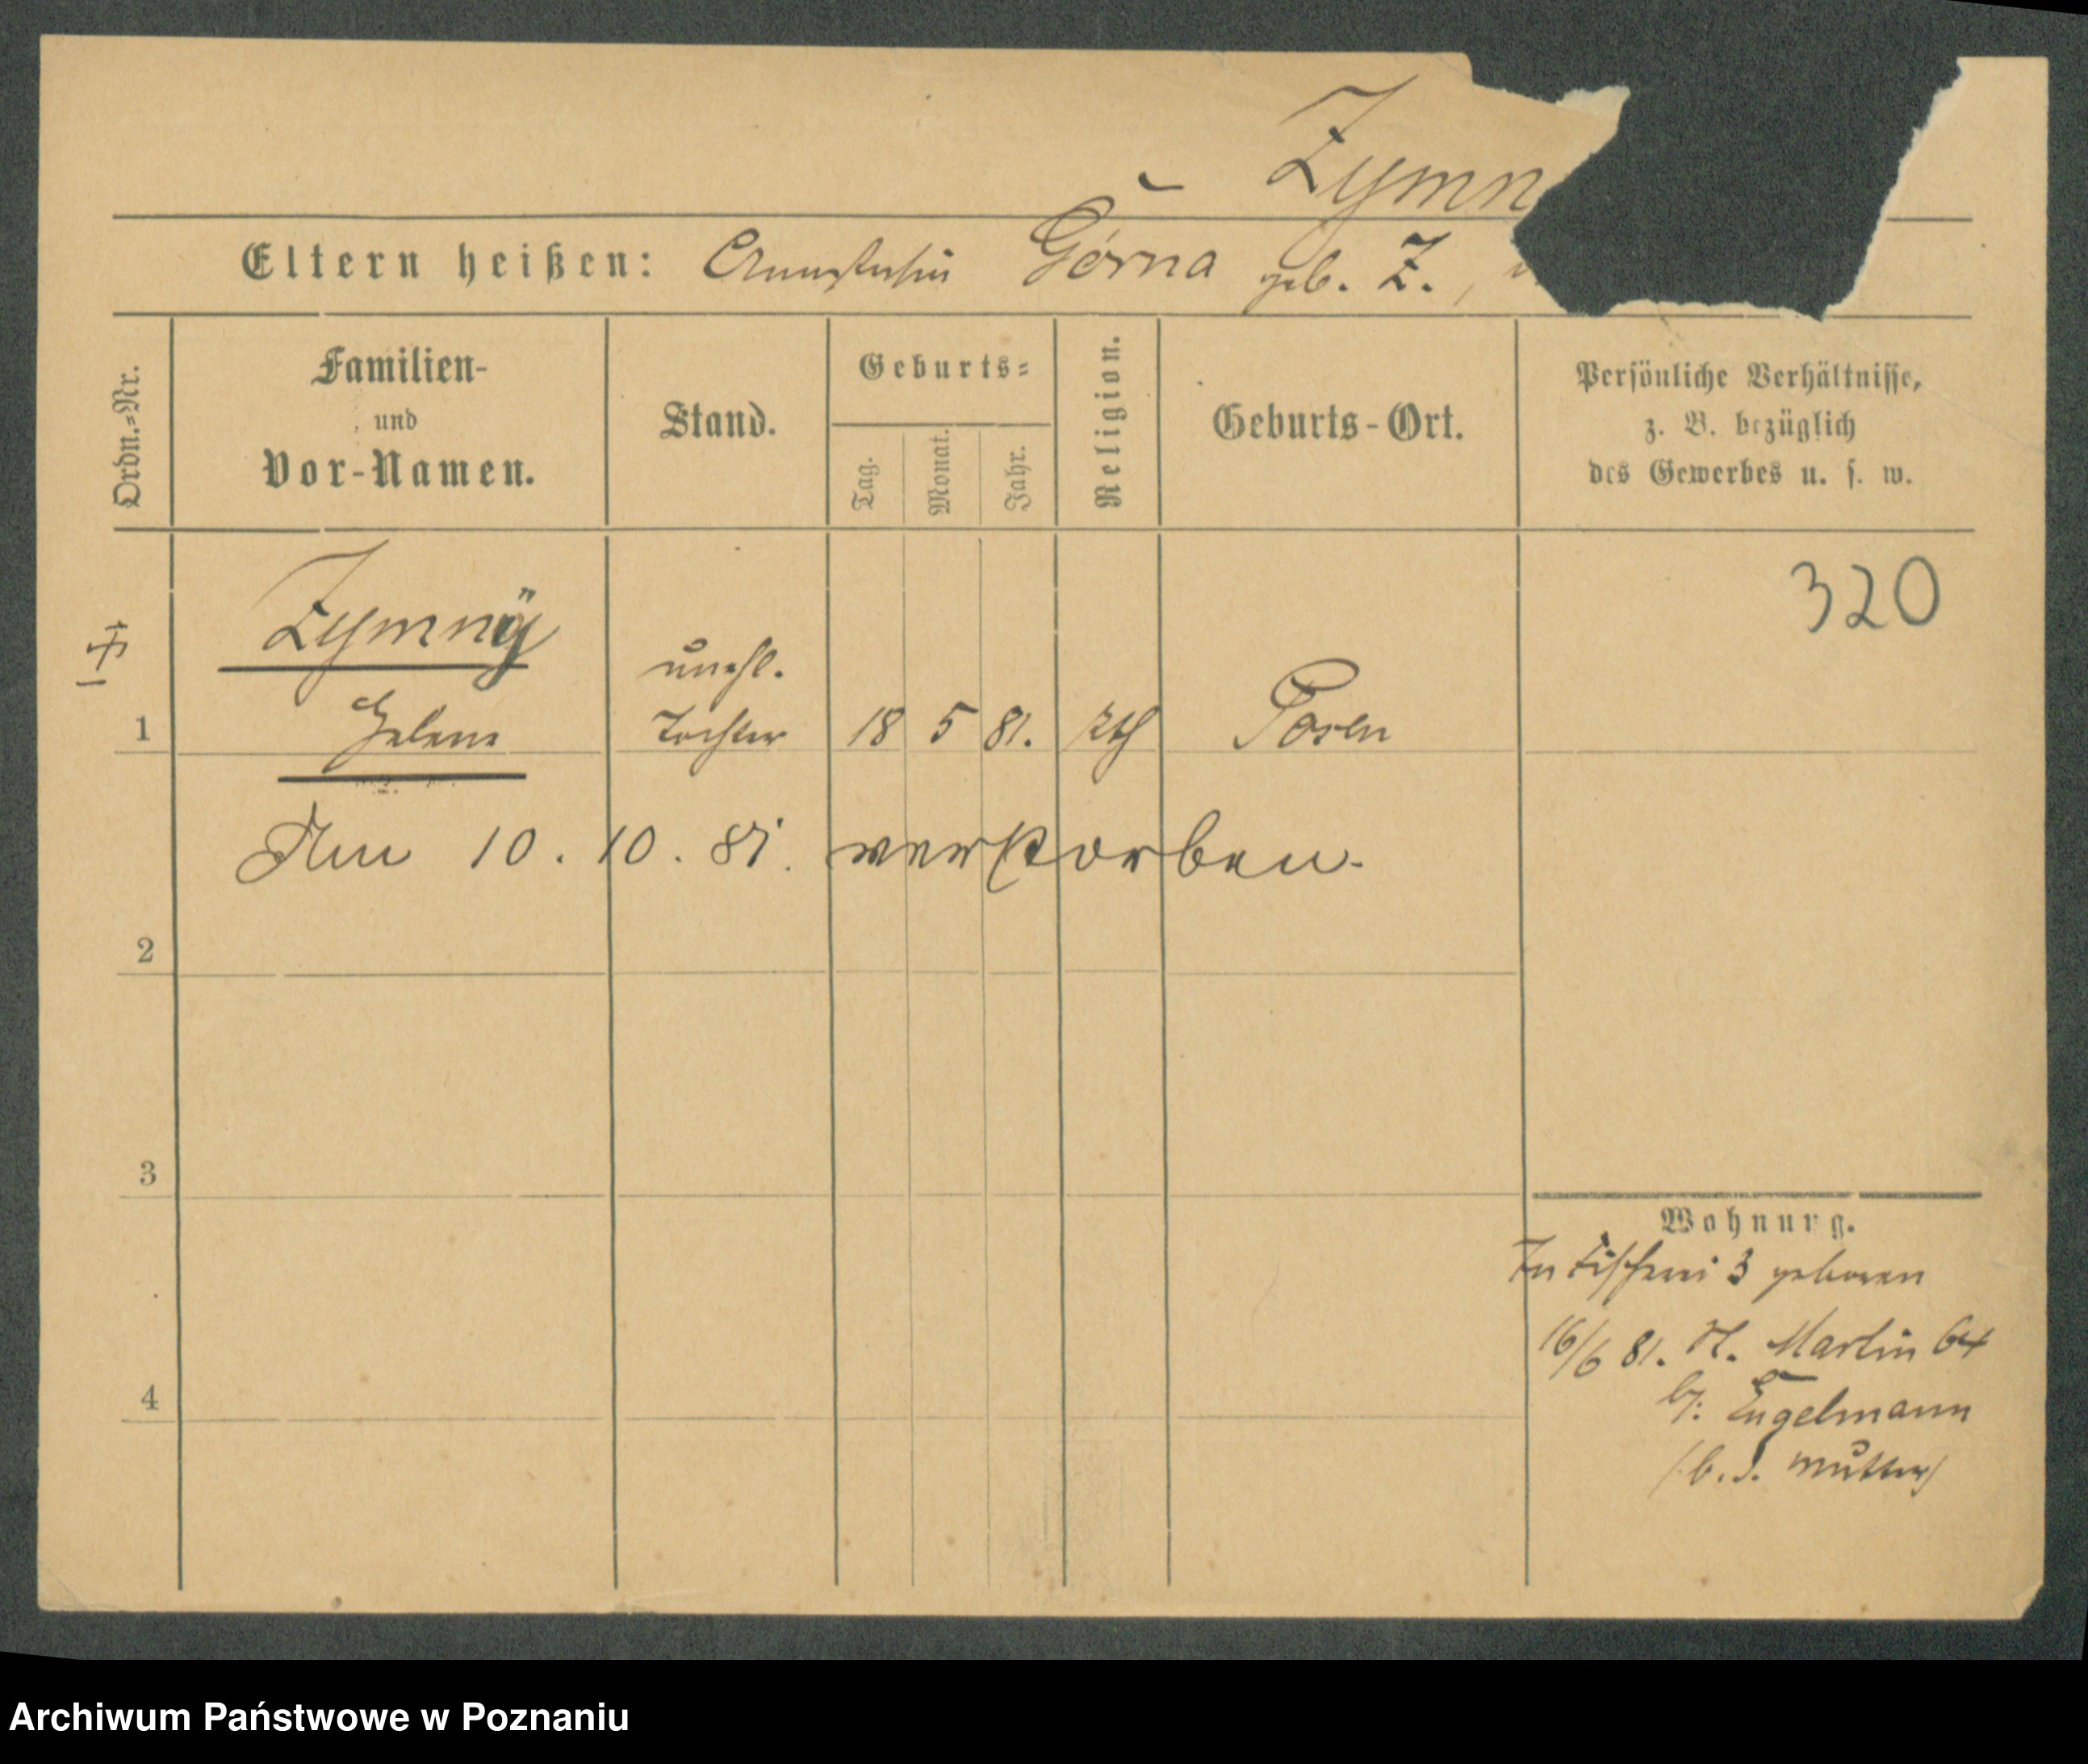 Zymn
Eltern heißen: Anastasia Górna geb. Z.,
Ordn.=Nr.
Familien-
und
Vor-Namen.
Stand.
Geburts=
Tag.
Monat.
Jahr.
Religion.
Geburts-Ort.
Persönliche Verhältnisse,
z. B. bezüglich
des Gewerbes u. s. w.
320
Zymny
unehl.
1 Helene Tochter 18 5 81. kth Posen
Am 10. 10. 81. verstorben.
2
3
4
Wohnung.
In Fischerei 3 geboren
16/6 81. St. Martin 64
b/: Engelmann
/b. d. Mutter/
Archiwum Państwowe w Poznaniu